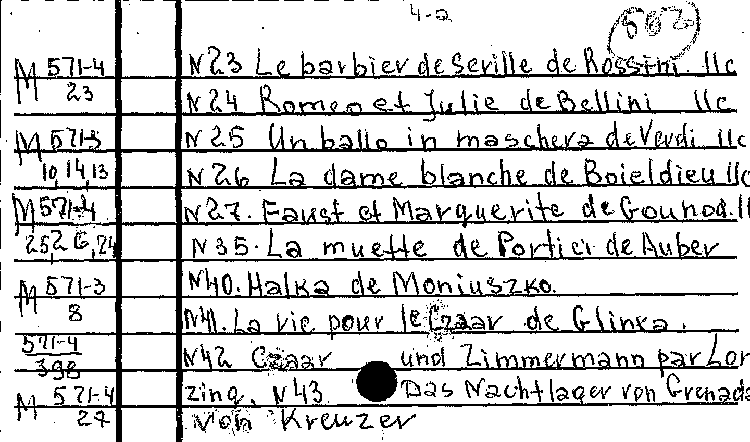 4-a
502
M 571-4 N23 Le barbier de Seville de Rossini. 11c
23
N24 Romeo et Julie de Bellini 11c
M 571-3 N25 Un ballo in maschera de Verdi 11c
10,14,13 N26 La dame blanche de Boieldieu 11c
M 571-4 N27. Faust et Marguerite de Gounod.
25,26,24 N35. La muette de Portici de Auber
M 571-3 N40. Halka de Moniuszko.
8 N41. La vie pour le Czaar de Glinka.
571-4
398 N42 Czaar und Zimmermann par Lor
M 571-4 zing. N43 Das Nachtlager von Grenada
27 von Kreuzer